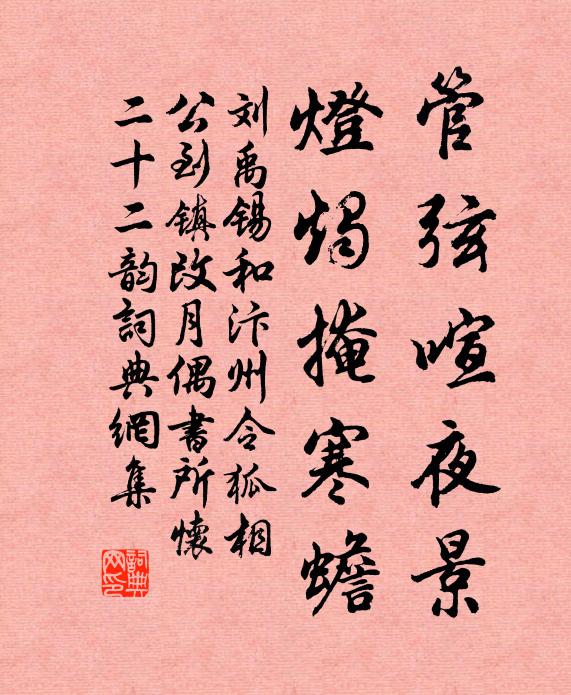 管弦喧夜景
燈燭掩寒蟾
刘禹锡和汴州令狐相
公到镇改月偶書所懷
二十二韵詞典網集
詞典网印